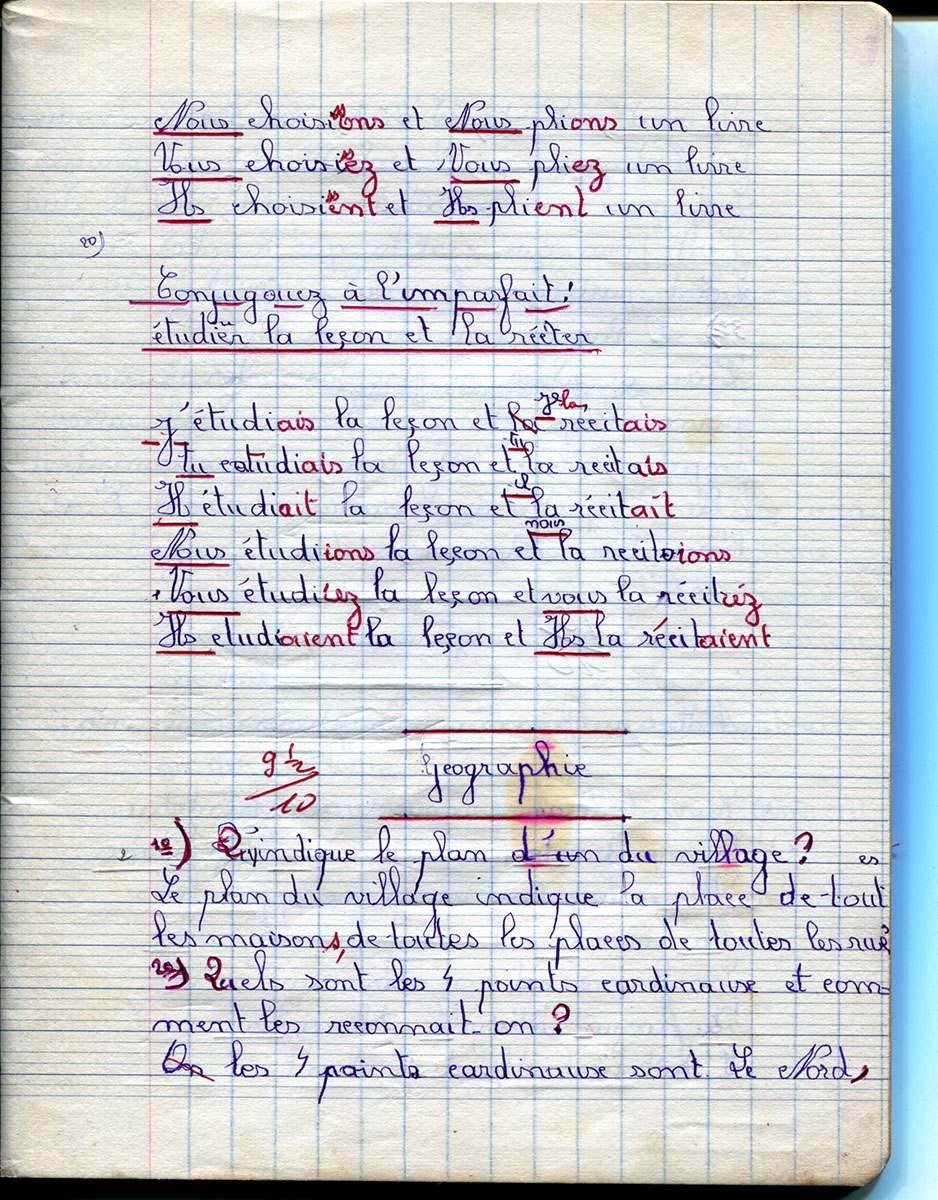 Nous choisissons et Nous plions un livre
Vous choisissez et Vous pliez un livre
Ils choisissent et Ils plient un livre
2º)
Conjuguez à l'imparfait:
étudier la leçon et la réciter
je la
J'étudiais la leçon et récitais
tu
Tu etudiais la leçon et la recitais
il
Il étudiait la leçon et la récitait
nous
Nous étudiions la leçon et la recitions
Vous étudiiez la leçon et vous la récitiez
Ils etudiaient la leçon et Ils la récitaient
9 1/2
/10
Geographie
1º) Qu'indique le plan d'un du village?
es
Le plan du village indique la place de tout
les maisons, de toutes les places de toutes les rue
2º) Quels sont les 4 points cardinaux et com-
ment les reconnait-on?
On les 4 points cardinaux sont Le Nord,